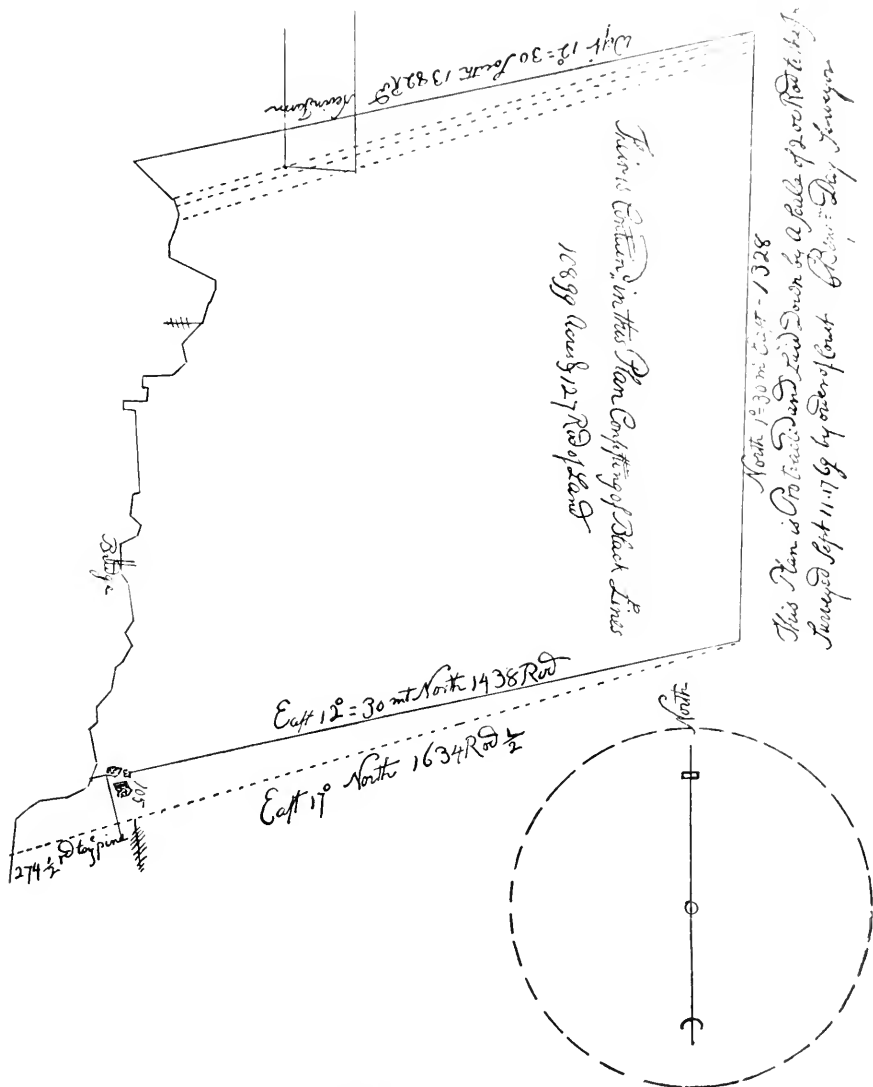 West 12°=30 South 1382 Rd
Farm
There is Contain,d in this Plan Consisting of Black Lines
10899 Acres & 127 Rod of Land
North 1°=30 m East - 1328
This Plan is Protracted and Laid Down by A Scale of 200 Rod to the In
Surveyed Sept 11. 1769 by order of Court Day Surveyor
Bridge
East 12°=30 mt North 1438 Rod
East 17° North 1634 Rod ½
105
274 ½ Rd to pine
North